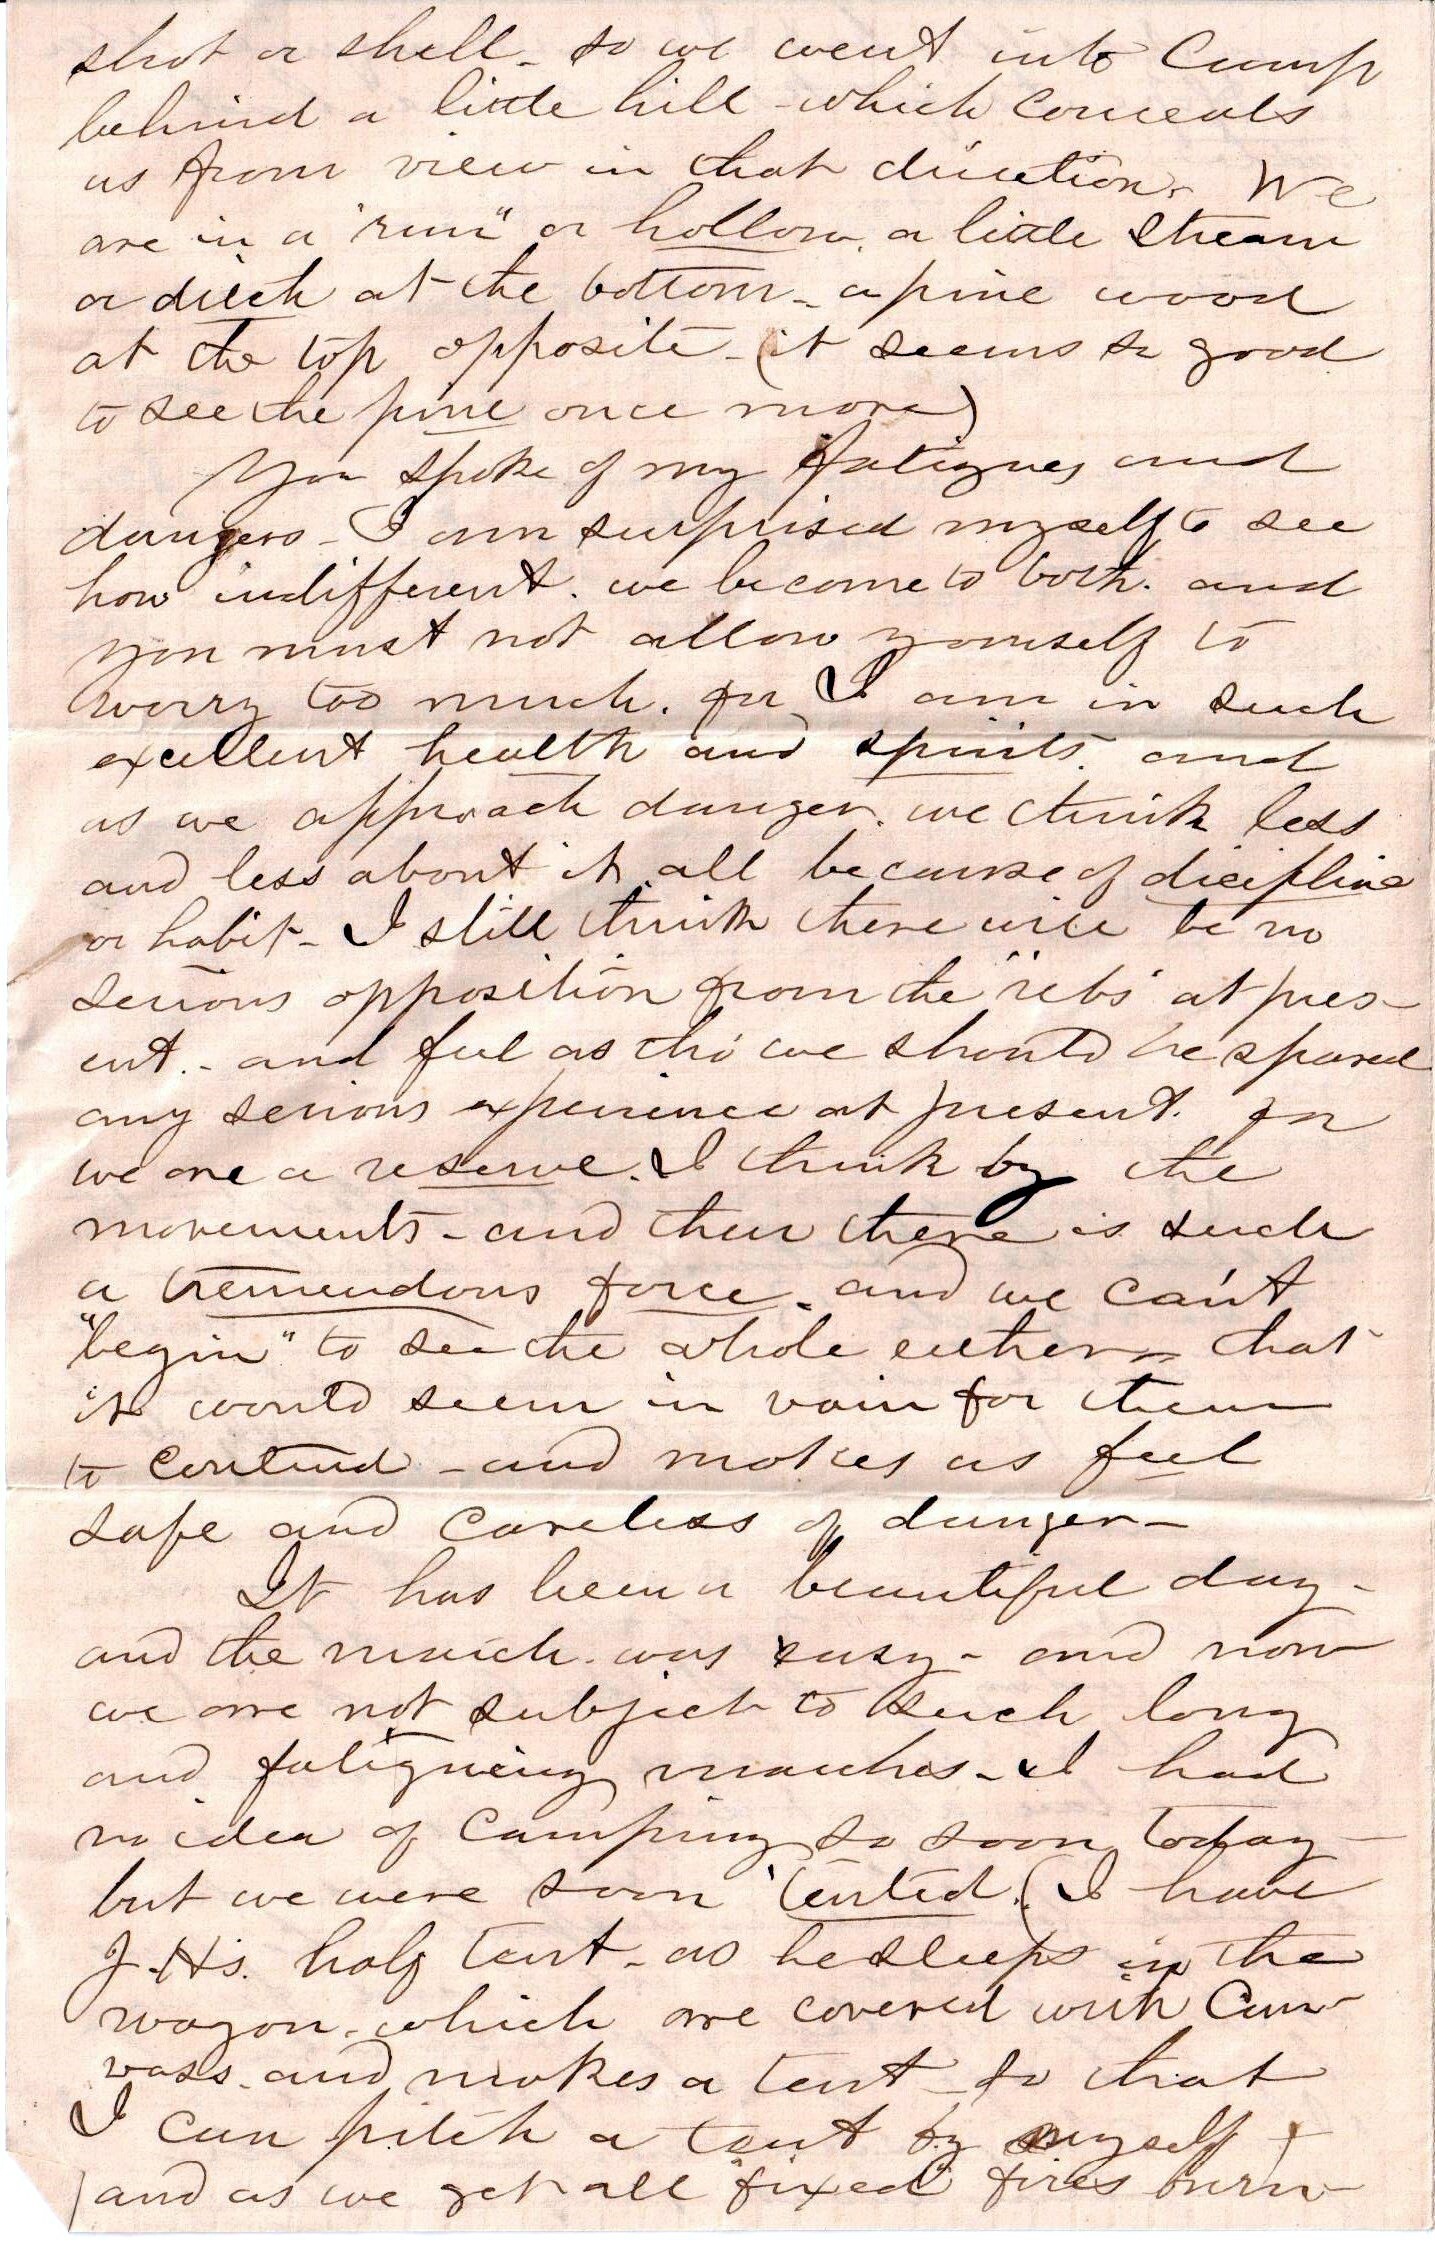 shot or shell - so we went into Camp
behind a little hill - which conceals
us from view in that direction. We
are in a "run" or hollow. a little stream
or ditch at the bottom - a pine wood
at the top opposite - (it seems so good
to see the pine once more)
You spoke of my fatigues and
dangers - I am surprised myself to see
how indifferent. we become to both. and
you must not allow yourself to
worry too much. for I am in such
excellent health and spirits. and
as we approach danger. we think less
and less about it, all because of dicipline
or habit - I still think there will be no
serious opposition from the "rebs" at pres-
ent. - and feel as tho' we should be spared
any serious experience at present. for
we are a reserve. I think by the
movements - and then there is such
a tremendous force - and we can't
"begin" to see the whole either - that
it would seem in vain for them
to contend - and makes us feel
safe and careless of danger -
It has been a beautiful day -
and the march. was easy - and now
we are not subject to such long
and fatigueing marches - I had
no idea of camping so soon today -
but we were soon "tented. (I have
J. H's. half tent - as he sleeps in the
wagon - which are covered with Can-
vass - and makes a tent - so that
I can pitch a tent by myself
and as we get all "fixed" fires burn